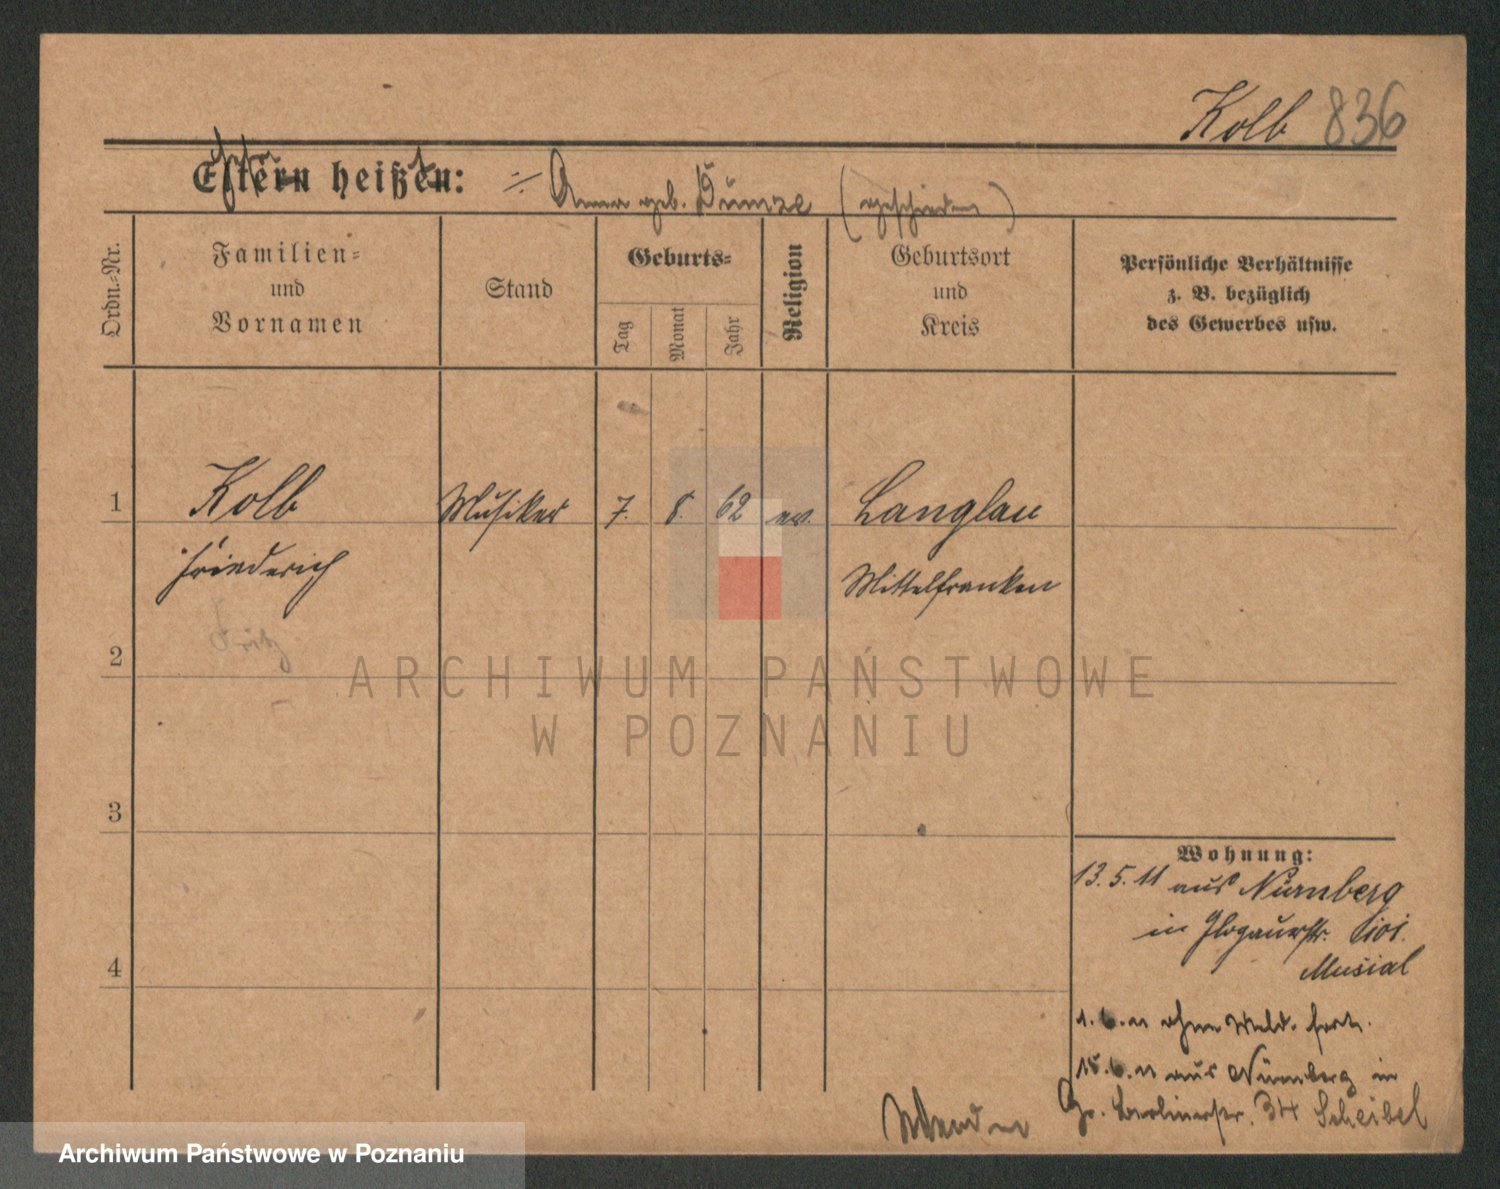 Kolb 836
Eltern heißen: Anna geb. Kunze (geschieden)
Ordn.-Nr.
Familien-
und
Vornamen
Stand
Geburts-
Tag
Monat
Jahr
Religion
Geburtsort
und
Kreis
Persönliche Verhältnisse
z. B. bezüglich
des Gewerbes usw.
1 Kolb Musiker 7. 8. 62 ev. Langlau
Friederich Mittelfranken
2
ARCHIWUM PAŃSTWOWE
W POZNANIU
3
4
Wohnung:
13.5.11 aus Nürnberg
in Glogauerstr. 101.
Musial
1.6.11 ohne Meld. fort.
15.6.11 aus Nürnberg in
Gr. Berlinerstr. 34 Scheibel
Wenden
Archiwum Państwowe w Poznaniu